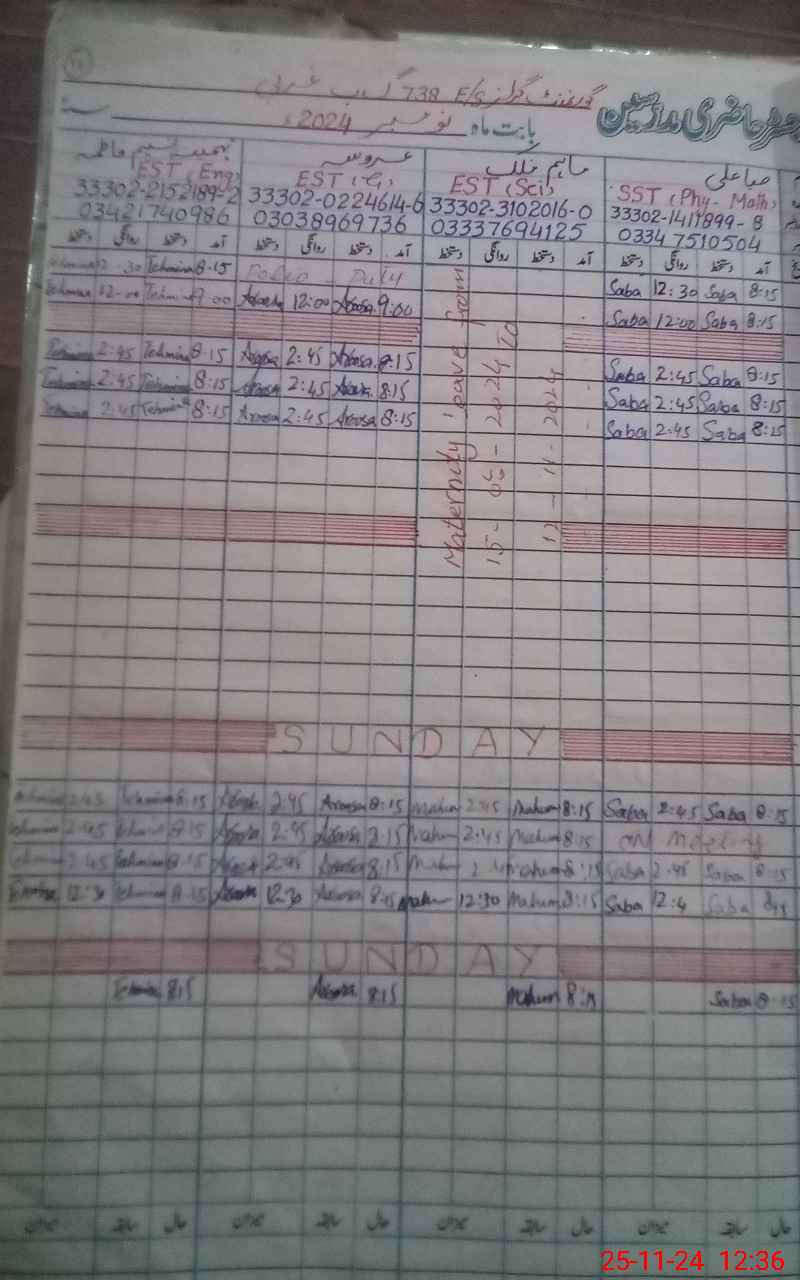 گورنمنٹ گرلز E/S 738 گ ب غربی
رجسٹر حاضری مدرسین
بابت ماہ نومبر 2024ء سنہ
تہمینہ نسیم فاطمہ عروسہ ماہم ملک صباعلی
EST (Eng) EST (G) EST (Sci) SST (Phy-Math)
33302-2152189-2 33302-0224614-6 33302-3102016-0 33302-1411899-8
03421740986 03038969736 03337694125 03347510504
دستخط روانگی دستخط آمد دستخط روانگی دستخط آمد دستخط روانگی دستخط آمد دستخط روانگی دستخط آمد
Tehmina 8:15 Polio Duty Saba 12:30 Saba 8:15
Tehmina 9:00 Aroosa 12:00 Aroosa 9:00 Saba 12:00 Saba 8:15
Tehmina 2:45 Tehmina 8:15 Aroosa 2:45 Aroosa 8:15 Saba 2:45 Saba 8:15
Tehmina 2:45 Tehmina 8:15 Aroosa 2:45 Aroosa 8:15 Saba 2:45 Saba 8:15
Tehmina 2:45 Tehmina 8:15 Aroosa 2:45 Aroosa 8:15 Saba 2:45 Saba 8:15
Maternity leave from
15-05-2024 To
12-11-2024
SUNDAY
Tehmina 2:45 Tehmina 8:15 Aroosa 2:45 Aroosa 8:15 Mahum 2:45 Mahum 8:15 Saba 2:45 Saba 8:15
Tehmina 2:45 Tehmina 8:15 Aroosa 2:45 Aroosa 8:15 Mahum 2:45 Mahum 8:15 ON Meeting
Tehmina 2:45 Tehmina 8:15 Aroosa 2:45 Aroosa 8:15 Mahum Mahum 8:15 Saba 2:45 Saba 8:15
12:30 Tehmina 8:15 Aroosa 12:30 Aroosa 8:15 Mahum 12:30 Mahum 8:15 Saba Saba
SUNDAY
Tehmina 8:15 Aroosa 8:15 Mahum 8:15 Saba 8:15
میزان سابقہ حال میزان سابقہ حال میزان سابقہ حال میزان سابقہ حال
25-11-24 12:36